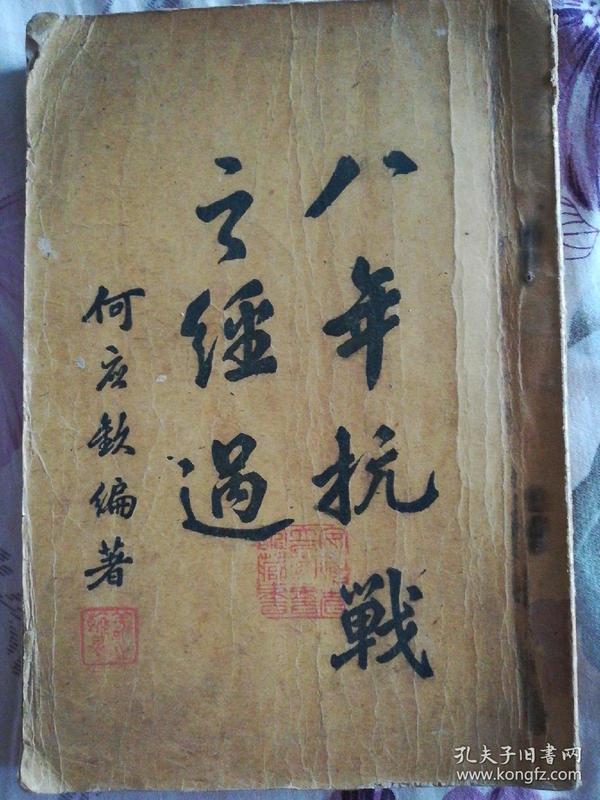 八年抗戰
之經過
何应欽編著
孔夫子旧書网
www.kongfz.com